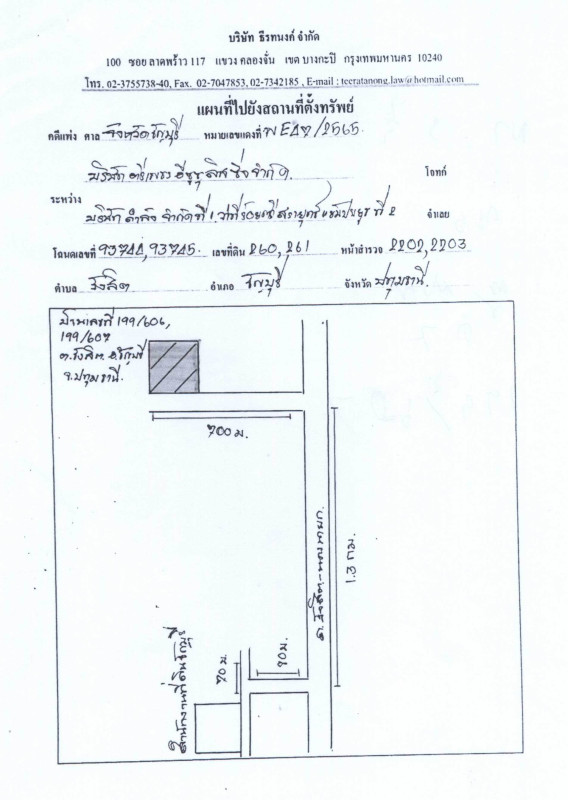 บริษัท ธีรทนงค์ จำกัด
100 ซอย ลาดพร้าว 117 แขวง คลองจั่น เขต บางกะปิ กรุงเทพมหานคร 10240
โทร. 02-3755738-40, Fax. 02-7047853, 02-7342185 , E-mail : teeratanong.law@hotmail.com
แผนที่ไปยังสถานที่ตั้งทรัพย์
คดีแพ่ง ศาล จังหวัดธัญบุรี หมายเลขแดงที่ /2565
บริษัท จำกัด โจทก์
ระหว่าง
บริษัท จำกัด ที่ 1 ว่าที่ร้อยตรี ที่ 2 จำเลย
โฉนดเลขที่ 93744, 93745. เลขที่ดิน 260, 261 หน้าสำรวจ 2202, 2203
ตำบล รังสิต อำเภอ ธัญบุรี จังหวัด ปทุมธานี.
บ้านเลขที่ 199/606,
199/607
ต.รังสิต อ.ธัญบุรี
จ.ปทุมธานี.
700 ม.
ถ.รังสิต-นครนายก.
1.3 กม.
70 ม.
90 ม.
สำนักงานที่ดินธัญบุรี